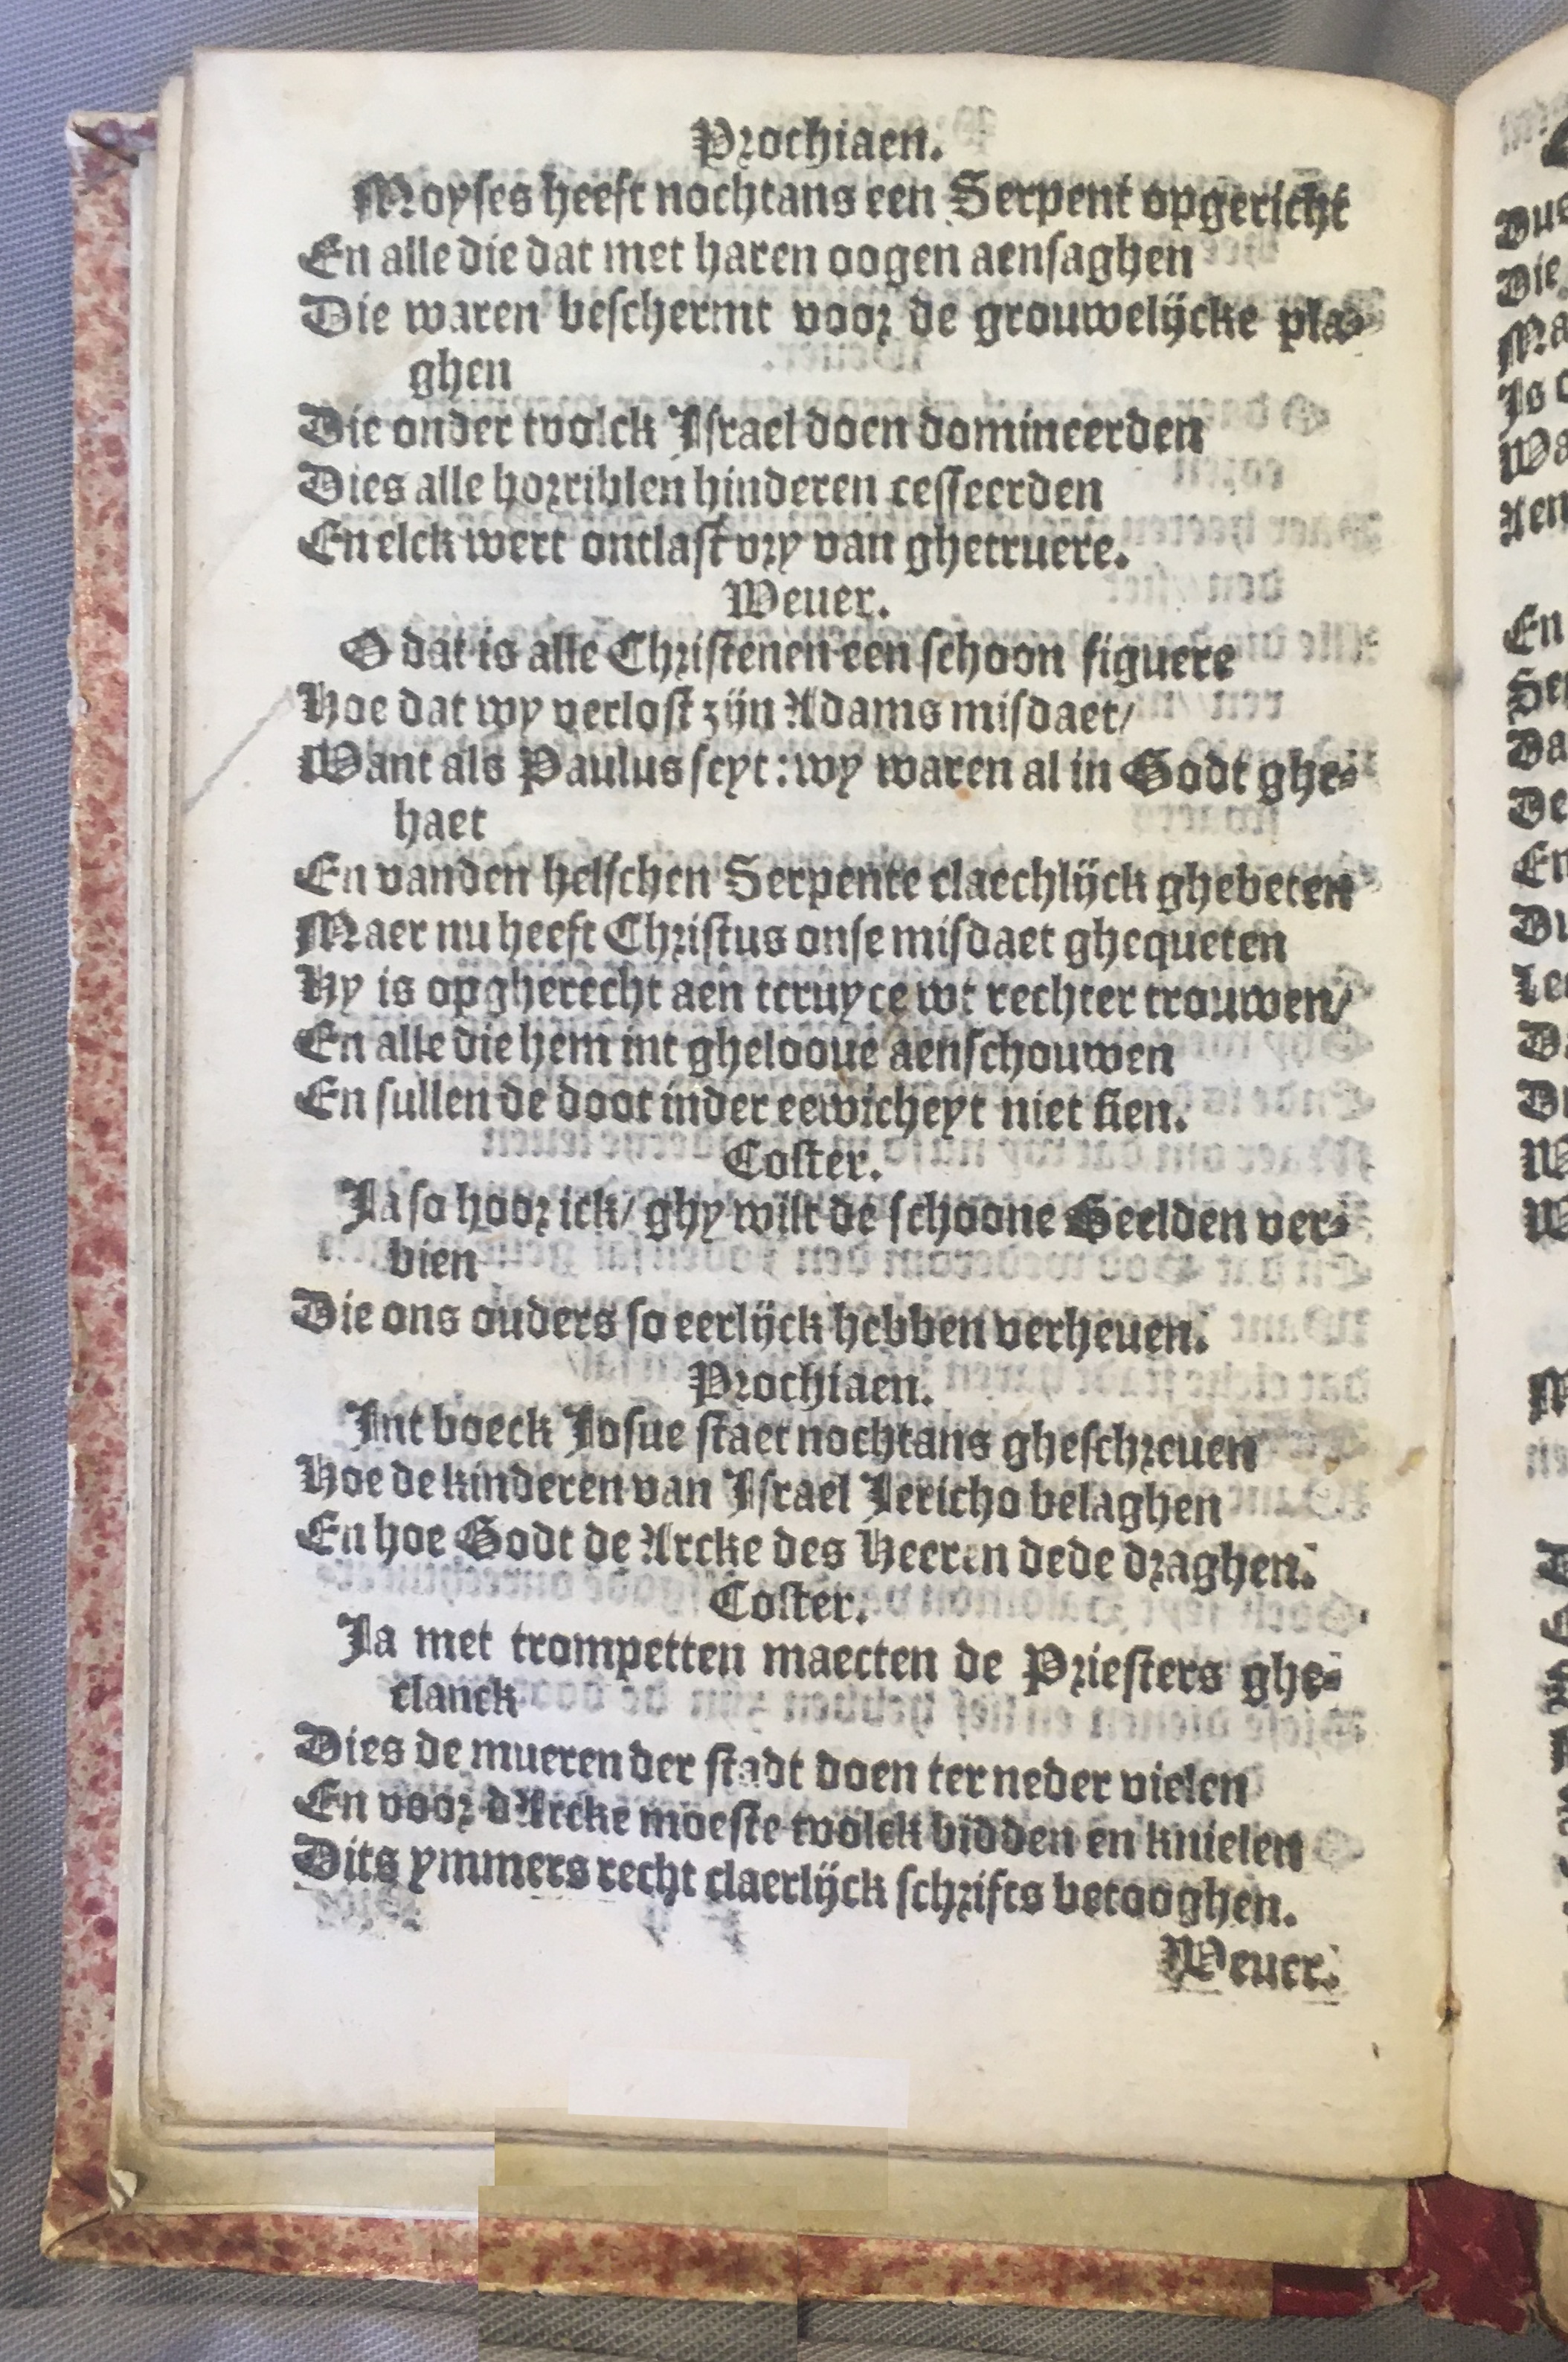 Prochiaen.
Moyses heeft nochtans een Serpent opgericht
En alle die dat met haren oogen aensaghen
Die waren beschermt voor de grouwelijcke pla-
ghen
Die onder tvolck Israel doen domineerden
Dies alle horriblen hinderen cesseerden
En elck wert ontlast vry van ghetruere.
Weuer.
O dat is alle Christenen een schoon figuere
Hoe dat wy verlost zijn Adams misdaet/
Want als Paulus seyt: wy waren al in Godt ghe-
haet
En vanden helschen Serpente claechlijck ghebeten
Maer nu heeft Christus onse misdaet ghequeten
Hy is opgherecht aen tcruyce wt rechter trouwen/
En alle die hem int ghelooue aenschouwen
En sullen de doot inder eewicheyt niet sien.
Coster.
Ja so hoor ick/ ghy wilt de schoone Beelden ver-
bien
Die ons ouders so eerlijck hebben verheuen.
Prochiaen.
Int boeck Josue staet nochtans gheschreuen
Hoe de kinderen van Israel Jericho belaghen
En hoe Godt de Arcke des Heeren dede draghen.
Coster.
Ja met trompetten maecten de Priesters ghe-
clanck
Dies de mueren der stadt doen ter neder vielen
En voor d'Arcke moeste tvolck bidden en knielen
Dits ymmers recht claerlijck schrifts betooghen.
Weuer.